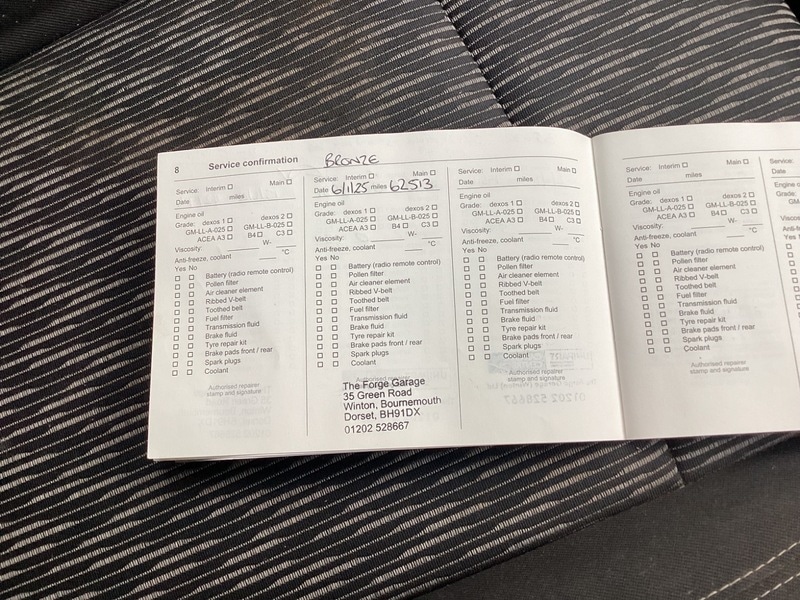 8 Service confirmation BRONZE
Service: Interim ☐ Main ☐
Date miles
Engine oil
Grade: dexos 1 ☐ dexos 2 ☐
GM-LL-A-025 ☐ GM-LL-B-025 ☐
ACEA A3 ☐ B4 ☐ C3 ☐
Viscosity: W-
Anti-freeze, coolant °C
Yes No
☐ ☐ Battery (radio remote control)
☐ ☐ Pollen filter
☐ ☐ Air cleaner element
☐ ☐ Ribbed V-belt
☐ ☐ Toothed belt
☐ ☐ Fuel filter
☐ ☐ Transmission fluid
☐ ☐ Brake fluid
☐ ☐ Tyre repair kit
☐ ☐ Brake pads front / rear
☐ ☐ Spark plugs
☐ ☐ Coolant
Authorised repairer
stamp and signature
Service: Interim ☐ Main ☐
Date 6/1/25 miles 62513
Engine oil
Grade: dexos 1 ☐ dexos 2 ☐
GM-LL-A-025 ☐ GM-LL-B-025 ☐
ACEA A3 ☐ B4 ☐ C3 ☐
Viscosity: W-
Anti-freeze, coolant °C
Yes No
☐ ☐ Battery (radio remote control)
☐ ☐ Pollen filter
☐ ☐ Air cleaner element
☐ ☐ Ribbed V-belt
☐ ☐ Toothed belt
☐ ☐ Fuel filter
☐ ☐ Transmission fluid
☐ ☐ Brake fluid
☐ ☐ Tyre repair kit
☐ ☐ Brake pads front / rear
☐ ☐ Spark plugs
☐ ☐ Coolant
Authorised repairer
The Forge Garage
35 Green Road
Winton, Bournemouth
Dorset, BH91DX
01202 528667
Service: Interim ☐ Main ☐
Date miles
Engine oil
Grade: dexos 1 ☐ dexos 2 ☐
GM-LL-A-025 ☐ GM-LL-B-025 ☐
ACEA A3 ☐ B4 ☐ C3 ☐
Viscosity: W-
Anti-freeze, coolant °C
Yes No
☐ ☐ Battery (radio remote control)
☐ ☐ Pollen filter
☐ ☐ Air cleaner element
☐ ☐ Ribbed V-belt
☐ ☐ Toothed belt
☐ ☐ Fuel filter
☐ ☐ Transmission fluid
☐ ☐ Brake fluid
☐ ☐ Tyre repair kit
☐ ☐ Brake pads front / rear
☐ ☐ Spark plugs
☐ ☐ Coolant
Authorised repairer
stamp and signature
Service: Interim ☐ Main ☐
Date miles
Engine oil
Grade: dexos 1 ☐ dexos 2 ☐
GM-LL-A-025 ☐ GM-LL-B-025 ☐
ACEA A3 ☐ B4 ☐ C3 ☐
Viscosity: W-
Anti-freeze, coolant °C
Yes No
☐ ☐ Battery (radio remote control)
☐ ☐ Pollen filter
☐ ☐ Air cleaner element
☐ ☐ Ribbed V-belt
☐ ☐ Toothed belt
☐ ☐ Fuel filter
☐ ☐ Transmission fluid
☐ ☐ Brake fluid
☐ ☐ Tyre repair kit
☐ ☐ Brake pads front / rear
☐ ☐ Spark plugs
☐ ☐ Coolant
Authorised repairer
stamp and signature
Service:
Date
Engine oil
Grade: